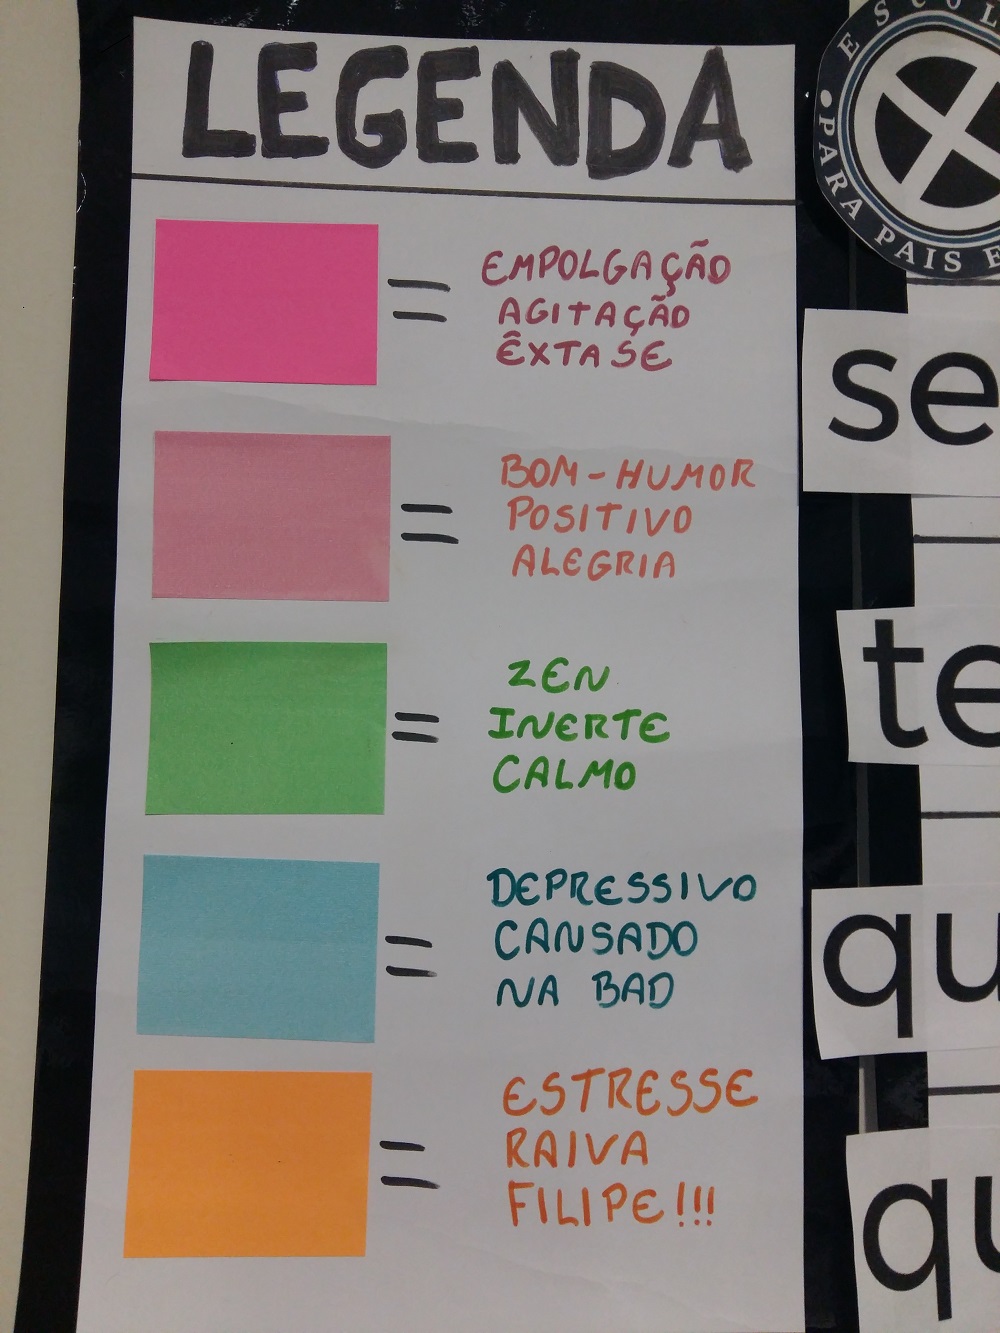 LEGENDA
EMPOLGAÇÃO
AGITAÇÃO
ÊXTASE
BOM-HUMOR
POSITIVO
ALEGRIA
ZEN
INERTE
CALMO
DEPRESSIVO
CANSADO
NA BAD
ESTRESSE
RAIVA
FILIPE!!!
ESCOL
PARA PAIS E
se
te
qu
qu